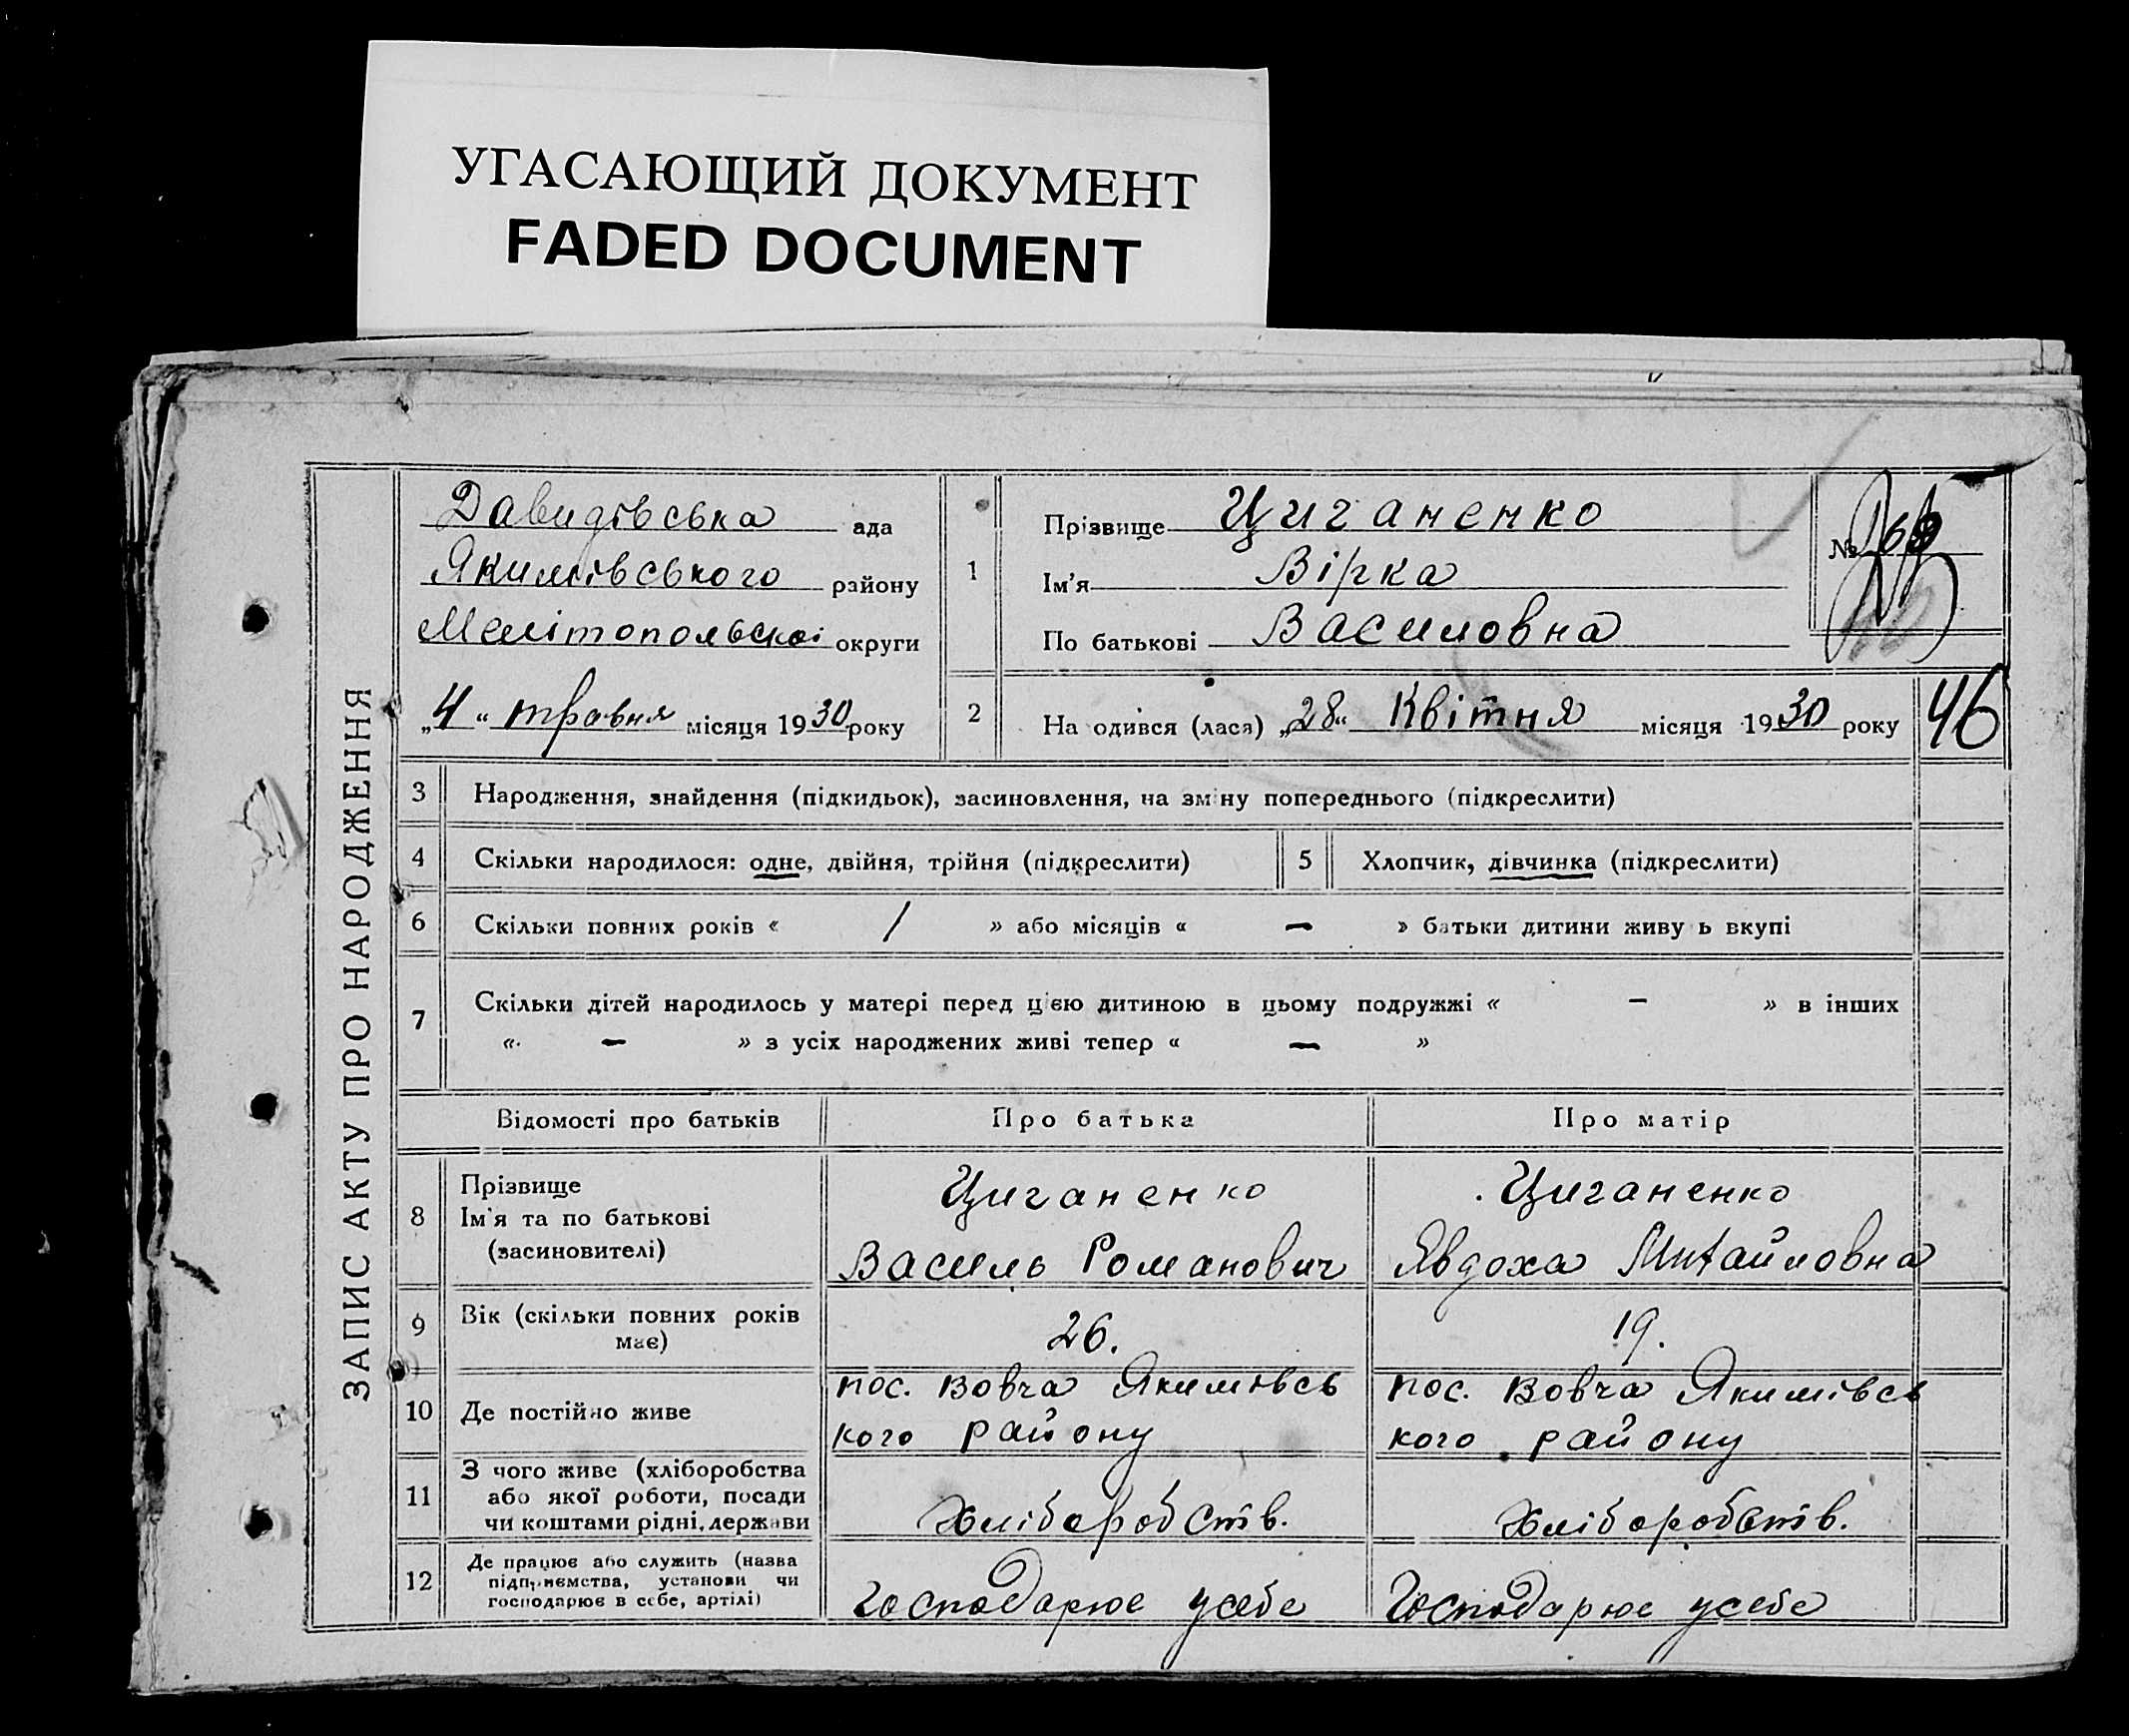 УГАСАЮЩИЙ ДОКУМЕНТ
FADED DOCUMENT
ЗАПИС АКТУ ПРО НАРОДЖЕННЯ
Давидівська ада
Якимівського району
Мелітопольскої округи
„4“ травня місяця 1930 року
1
Прізвище Циганенко
Ім'я Вірка
По батькові Василовна
№
2
На одився (лася) „28“ Квітня місяця 1930 року
46
3 Народження, знайдення (підкидьок), засиновлення, на зміну попереднього (підкреслити)
4 Скільки народилося: одне, двійня, трійня (підкреслити) 5 Хлопчик, дівчинка (підкреслити)
6 Скільки повних років « / » або місяців « — » батьки дитини живу ь вкупі
7 Скільки дітей народилось у матері перед цією дитиною в цьому подружжі « — » в інших
« — » з усіх народжених живі тепер « — »
Відомості про батьків Про батька Про матір
8 Прізвище
Ім'я та по батькові
(засиновителі)
Циганенко
Василь Романович
Циганенко
Явдоха Михайловна
9 Вік (скільки повних років
має)
26.
19.
10 Де постійно живе
пос. Вовча Якимівсь
кого району
пос. Вовча Якимівсь
кого району
11 З чого живе (хліборобства
або якої роботи, посади
чи коштами рідні, держави
Хліборобств.
Хліборобств.
12 Де працює або служить (назва
підприємства, установи чи
господарює в себе, артілі)
Господарює усебе
Господарює усебе